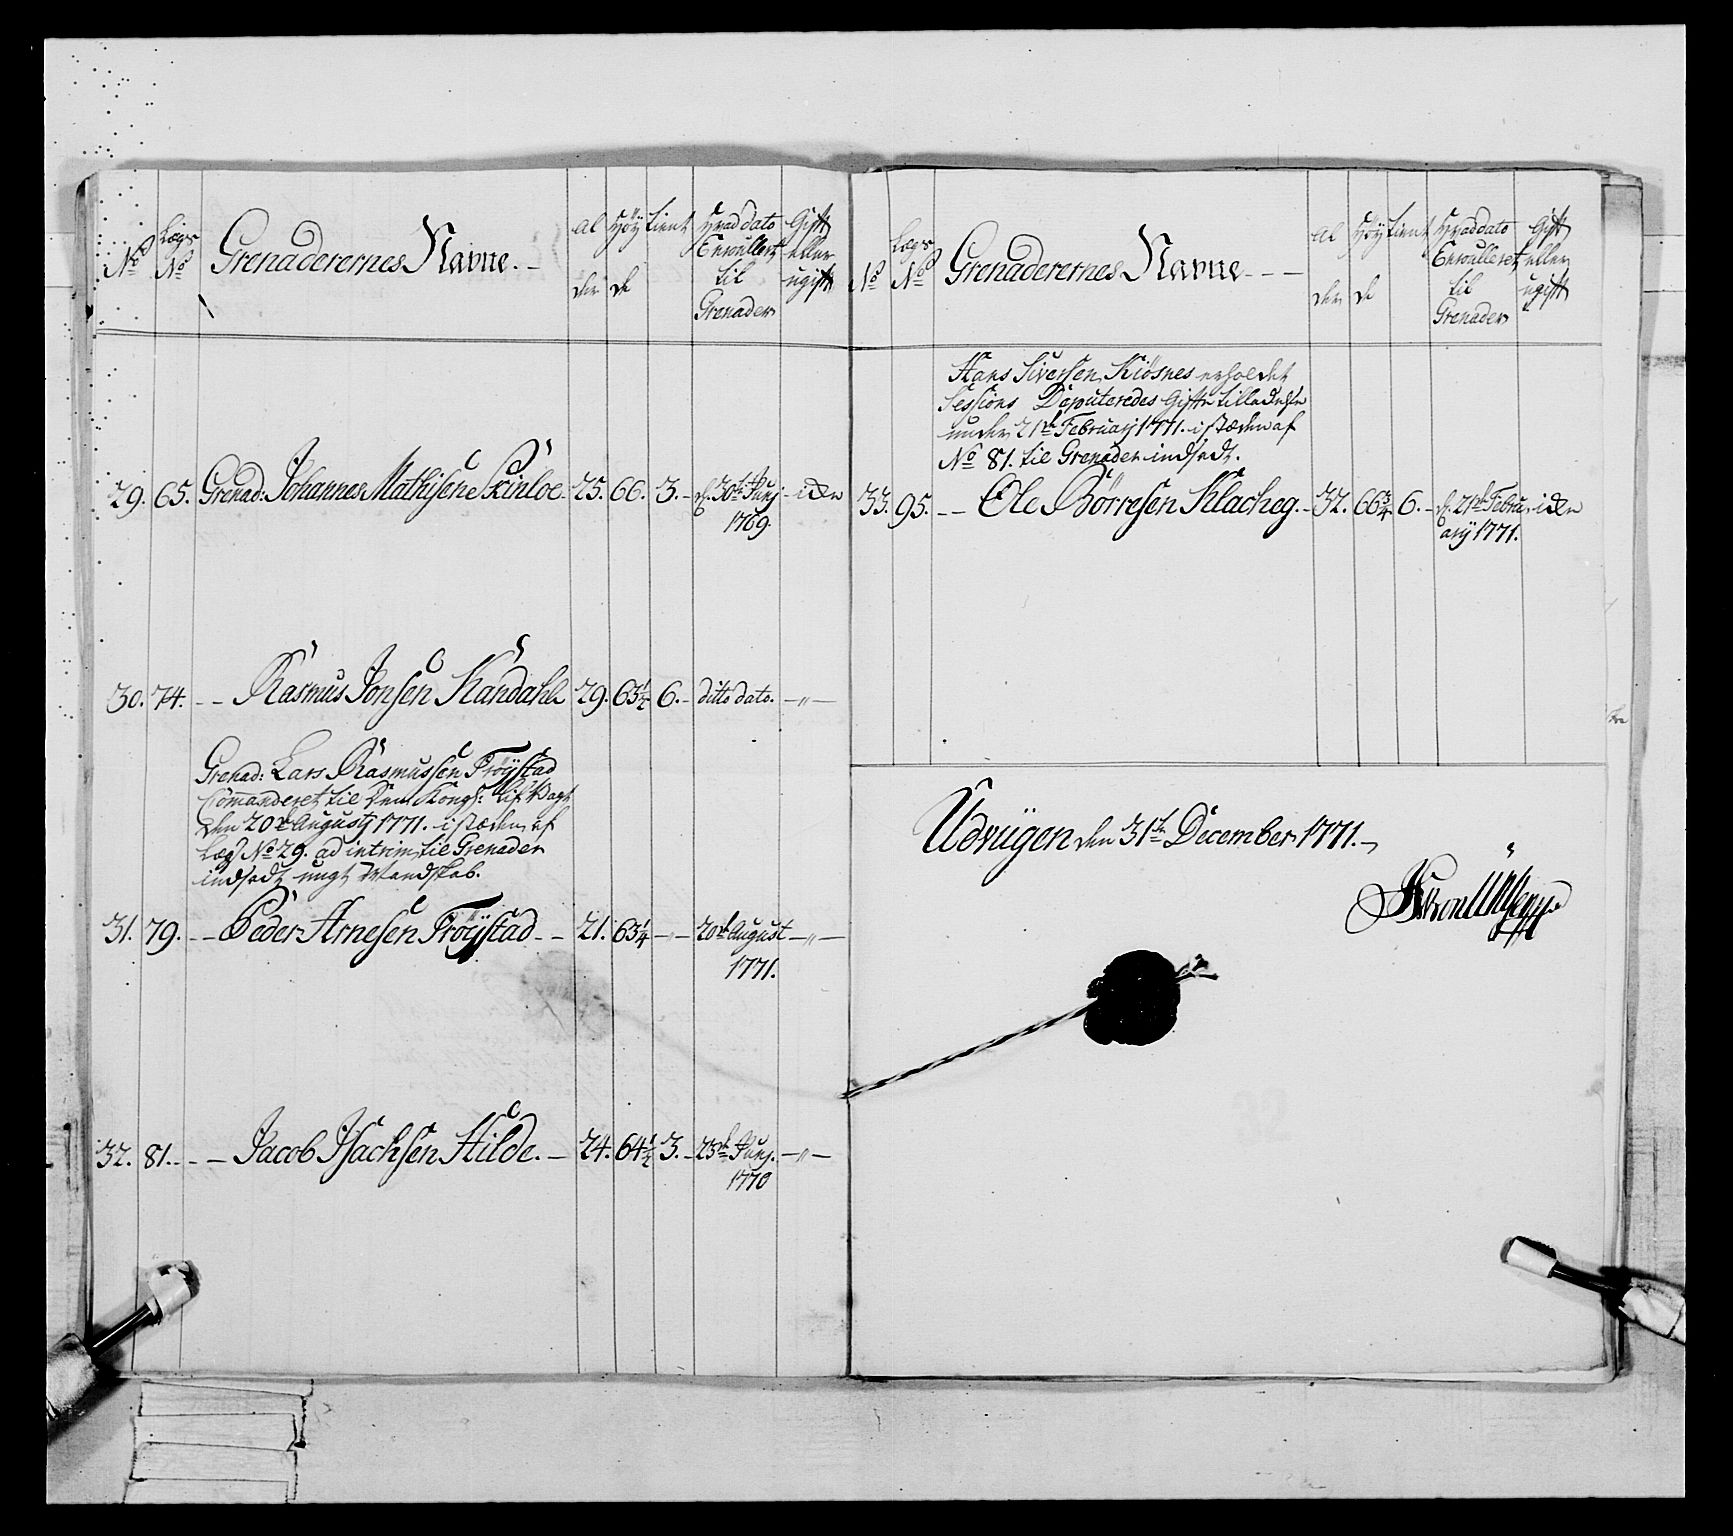 No
Lægs No
Grenaderernes Navne. -
Al der
Höy de
Tient
Hvad dato Enroulleret til Grenader
Gift eller ugift
29. 65. Grenad: Johannes Mathisen Skinloe 25. 66. 3. - d. 30te Junj 1769. - iden
30. 74. - - Rasmus Jonsen Handahl 29. 63½ 6. - ditto dato. - " -
Grenad: Lars Rasmussen Fröystad
Commanderet til Den Kongl: Lif Vagt
den 20de Augustj 1771. i stæden af
Læg No 29. ad intrim til Grenader
indsadt ungt Mandskab.
31. 79. - - Peder Arnesen Fröystad - - 21. 63¼ - " - 20de August 1771. - " -
32. 81. - - - Jacob Isachsen Hilde. - 24. 64½ 3. - 23de Junj. 1770 - " -
No
Lægs No
Grenaderernes Navne - - -
Al der
Höy de
Tient
Hvad dato Enroulleret til Grenader
Gift eller ugift
Hans Siversen Kiösnes erholdet
Sessions Deputeredes Gifte tilladelse
under 21de Februarj 1771. i stæden af
No 81. til Grenader indsadt.
33. 95. - - Ole Börresen Klacheg. - 32. 66¾ 6. - d. 21de Februarij 1771. iden
Udvügen den 31te December 1771. -